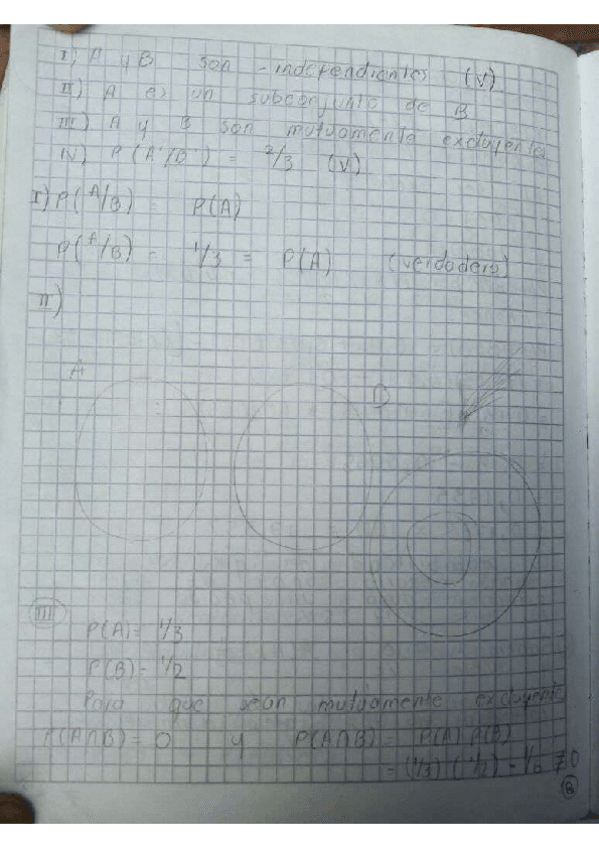 I) A y B son - independientes (V)
II) A es un subconjunto de B
III) A y B son mutuamente excluyente
IV) P(A'/B') = 2/3 (V)
I) P(A/B) = P(A)
P(A/B) = 1/3 = P(A) (verdadero)
II)
A B
III
P(A) = 1/3
P(B) = 1/2
Para que sean mutuamente excluyente
P(A∩B) = 0 y P(A∩B) = P(A) P(B)
= (1/3) (1/2) = 1/6 ≠ 0
8